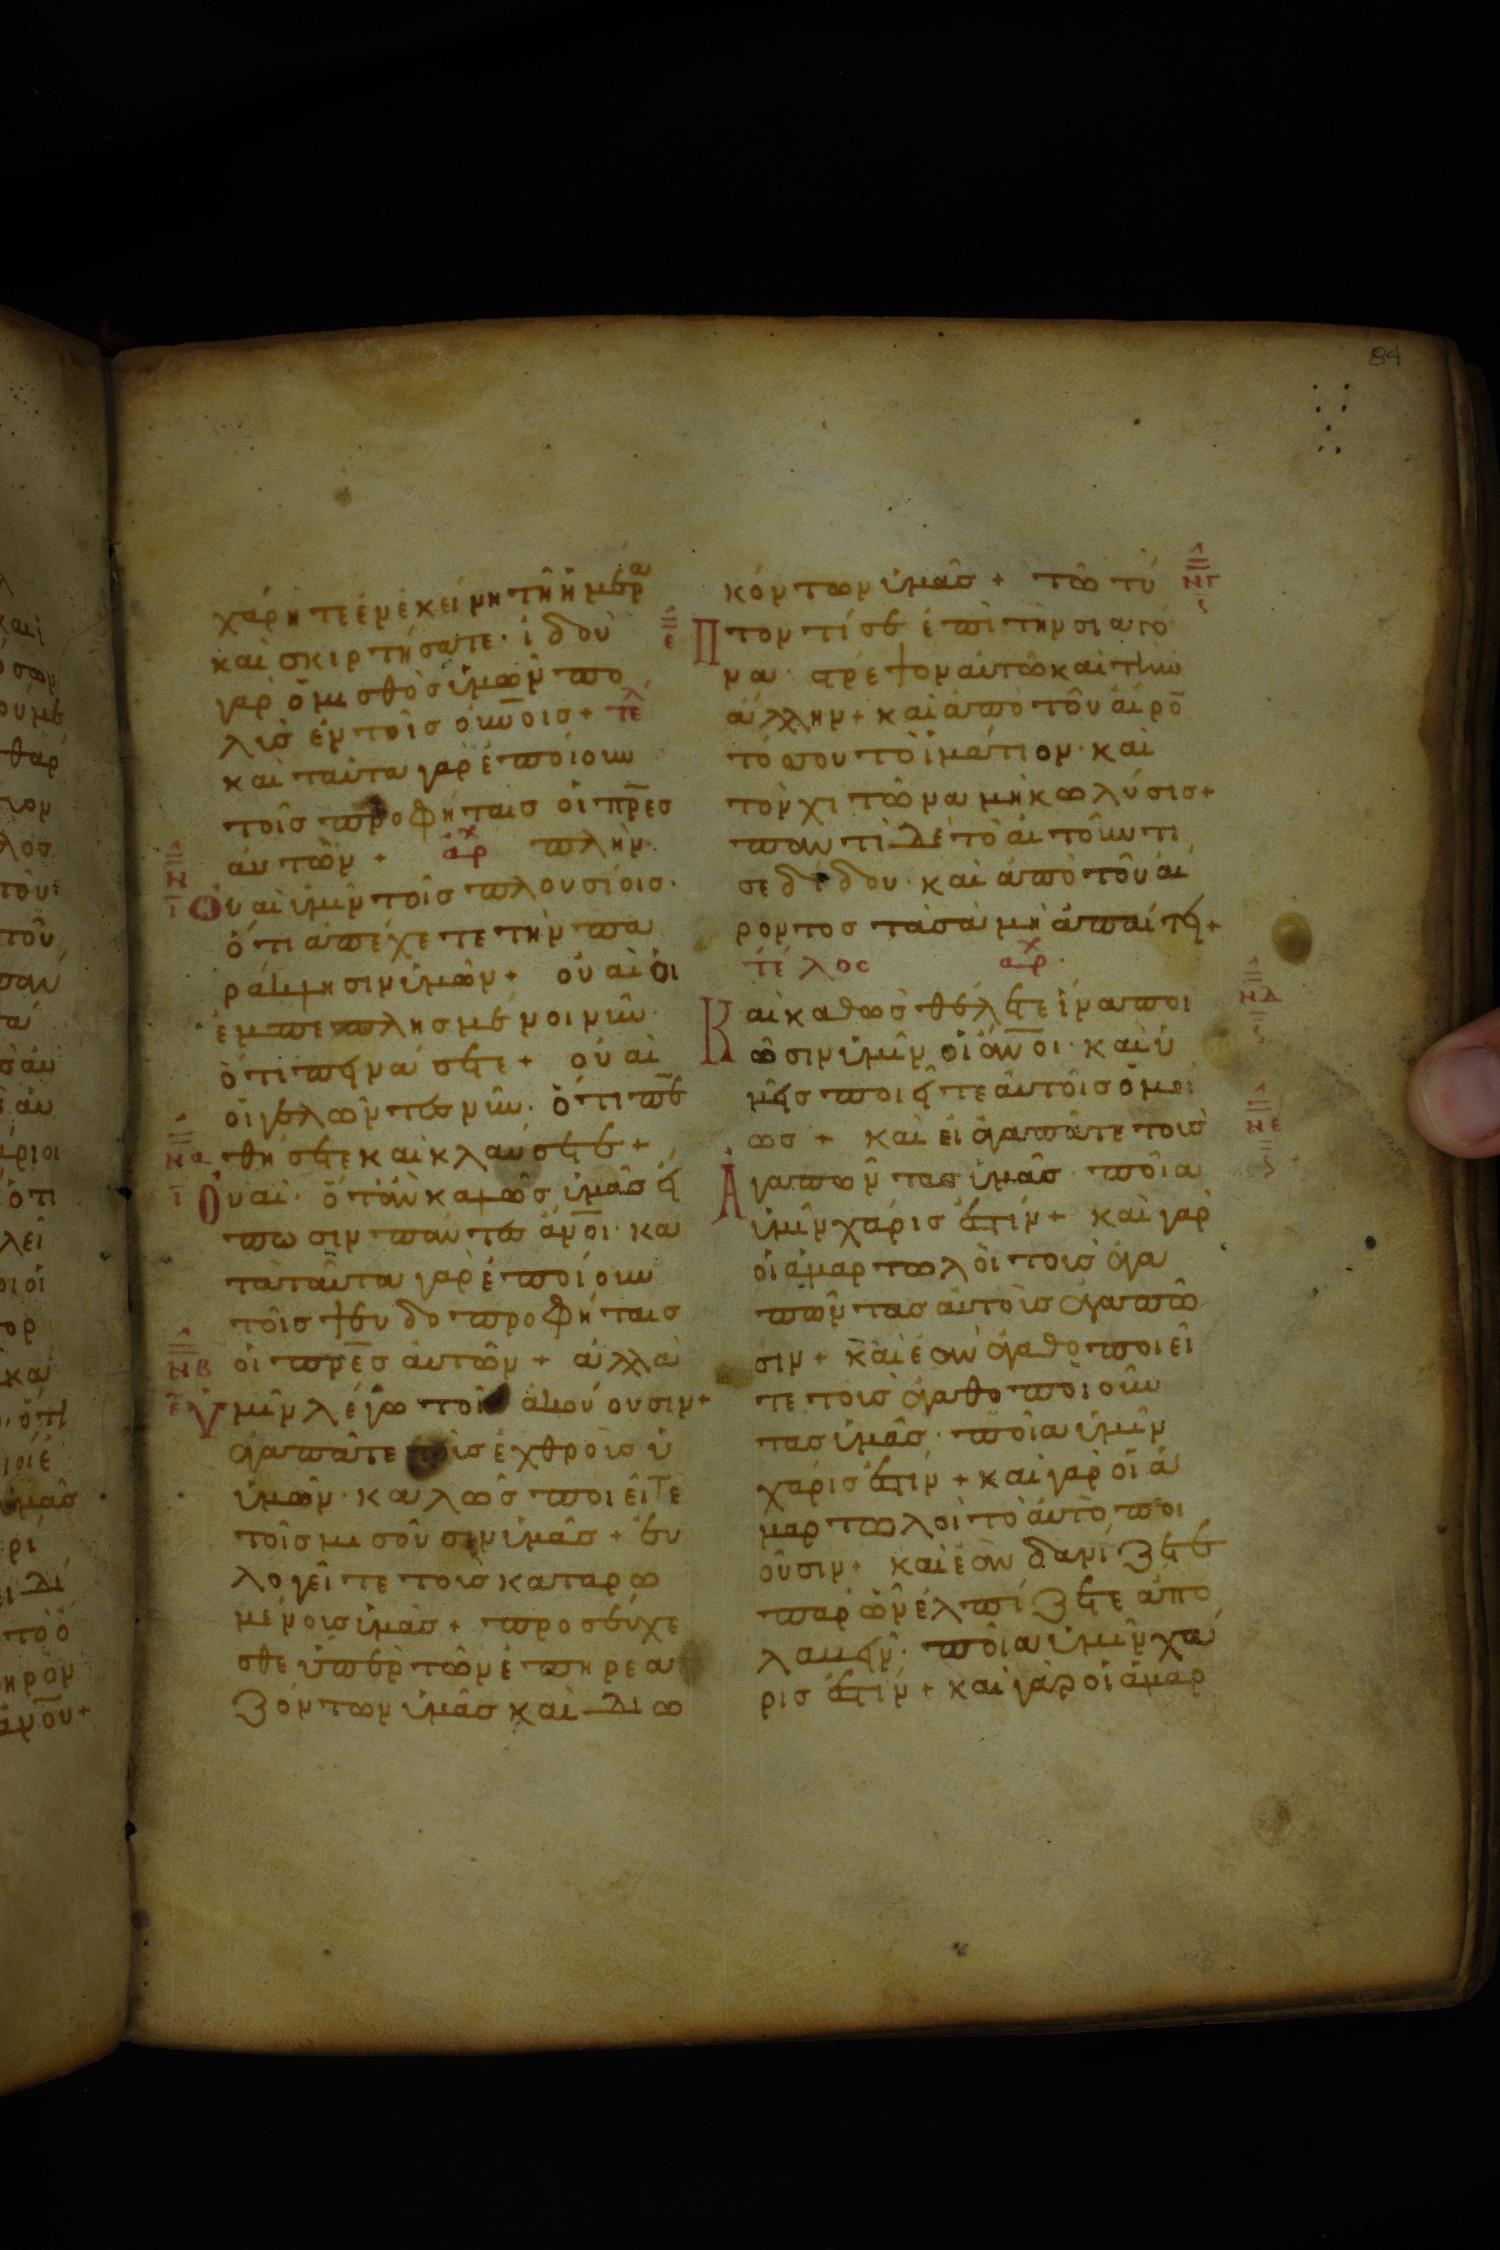 84
χάρητε ἐν ἐκείνη τῆ ἡμέρα
καὶ σκιρτήσατε· ἰδοὺ
γὰρ ὁ μισθὸς ὑμῶν πο
λὺς ἐν τοῖς οὐνοις + τελ
κατ ταῦτα γὰρ ἐποίουν
τοῖς προφήταις οἱ πρες
αὐτῶν + ἀρχ πλὴν
Οὐαὶ ὑμῖν τοῖς πλουσίοις·
ὅτι ἀπέχετε τὴν πα
ράκλησιν ὑμῶν + οὐαὶ οἱ
ἐμπεπλησμένοι νῦν·
ὅτι πεινάσετε + οὐαὶ
οἱ γελῶντες νῦν· ὅτι πε
θήσετε καὶ κλαύσετε +
Οὐαὶ· ὅταν καλῶς ὑμᾶς εἴ
πωσιν πάντες ἄνοι· κα
τὰ ταῦτα γὰρ ἐποίουν
τοῖς ψευδοπροφήταις
οἱ πρες αὐτῶν + ἀλλὰ
Ὑμῖν λέγω τοῖς ἀκούουσιν +
ἀγαπᾶτε τοὺς ἐχθροὺς ὑ
ὑμῶν· καλῶς ποιεῖτε
τοῖς μισοῦσιν ὑμᾶς + εὐ
λογεῖτε τοὺς καταρω
μένους ὑμᾶς + προσεύχε
σθε ὑπὲρ τῶν ἐπηρεα
ζόντων ὑμᾶς καὶ διω
κόντων ὑμᾶς + τῶ τύ
Πτοντί σε ἐπὶ τὴν σιαγό
να στρέψον αὐτῶ καὶ τὴν
ἄλλην + καὶ ἀπὸ τοῦ αἴρο
τός σου τὸ ἱμάτιον· καὶ
τὸν χιτῶνα μὴ κωλύσις +
παντὶ δὲ τὸ αἰτοῦντι
σε δίδου· καὶ ἀπὸ τοῦ αἴ
ροντος τὰ σὰ μὴ ἀπαίτει +
τέλος ἀρχ
Καὶ καθὼς θέλετε ἵνα ποι
ῶσιν ὑμῖν οἱ ἄνοι· καὶ ὑ
μεῖς ποιεῖτε αὐτοῖς ὁμοί
ως + καὶ εἰ ἀγαπᾶτε τοὺς
Ἀγαπῶντας ὑμᾶς· ποῖα
ὑμῖν χάρις ἐστίν + καὶ γὰρ
οἱ ἁμαρτωλοὶ τοὺς ἀγα
πῶντας αὐτοὺς ἀγαπῶ
σιν + καὶ ἐὰν ἀγαθοποιεῖ
τε τοὺς ἀγαθοποιοῦν
τας ὑμᾶς· ποῖα ὑμῖν
χάρις ἐστίν + καὶ γὰρ οἱ ἁ
μαρτωλοὶ τὸ αὐτὸ ποι
οῦσιν + καὶ ἐὰν δανίζετε
παρ' ὧν ἐλπίζετε ἀπο
λαβεῖν· ποῖα ὑμῖν χά
ρις ἐστίν + καὶ γὰρ οἱ ἁμαρ